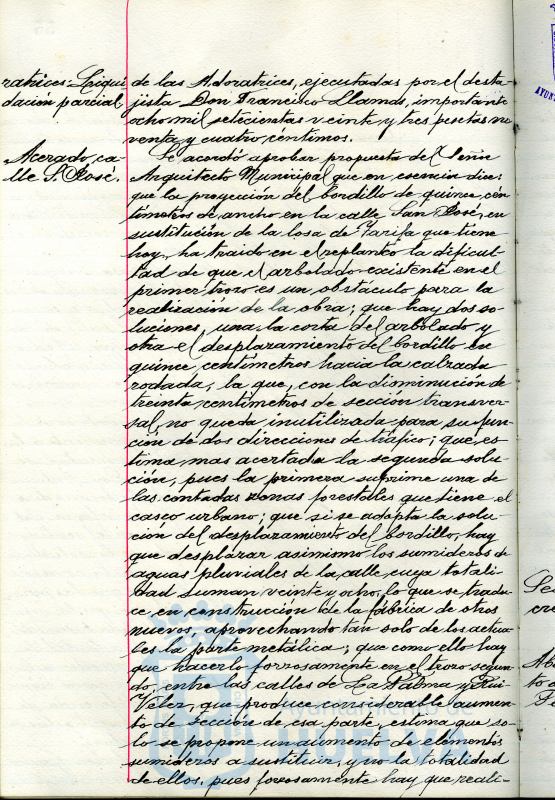 ratrices: Liqui
dacion parcial
de las Adoratrices, ejecutadas por el desta-
jista Don Francisco Llamas, importante
ocho mil setecientas veinte y tres pesetas no
venta y cuatro céntimos.
Acerado, ca-
lle S. José.
Se acordó aprobar propuesta del Señor
Arquitecto Municipal que en esencia dice:
que la proyección del bordillo de quince cén
timetros de ancho en la calle San José, en
sustitución de la losa de Tarifa que tiene
hoy, ha traido en el replanteo la dificul-
tad de que el arbolado existente en el
primer trozo es un obstáculo para la
realización de la obra; que hay dos so-
luciones, una la corta del arbolado y
otra el desplazamiento del bordillo en
quince centímetros hacia la calzada
rodada, la que, con la disminución de
treinta centímetros de sección transver-
sal, no queda inutilizada para su fun-
ción de dos direcciones de tráfico; que, es-
tima, mas acertada la segunda solu-
ción, pues la primera suprime una de
las contadas zonas forestales que tiene el
casco urbano; que si se adopta la solu-
ción del desplazamiento del bordillo, hay
que desplazar asimismo los sumideros de
aguas pluviales de la calle, cuya totali-
dad suman veinte y ocho, lo que se tradu-
ce en construcción de la fábrica de otros
nuevos, aprovechando tan solo de los actua-
les la parte metálica; que como ello hay
que hacerlo forzosamente en el trozo segun-
do, entre las calles de La Palma y Rui
Velez, que produce considerable aumen-
to de sección de esa parte, estima que so-
lo se propone un aumento de elementos
sumideros a sustituir, y no la totalidad
de ellos, pues forzosamente hay que reali-
Ayuntamiento de
HUELVA